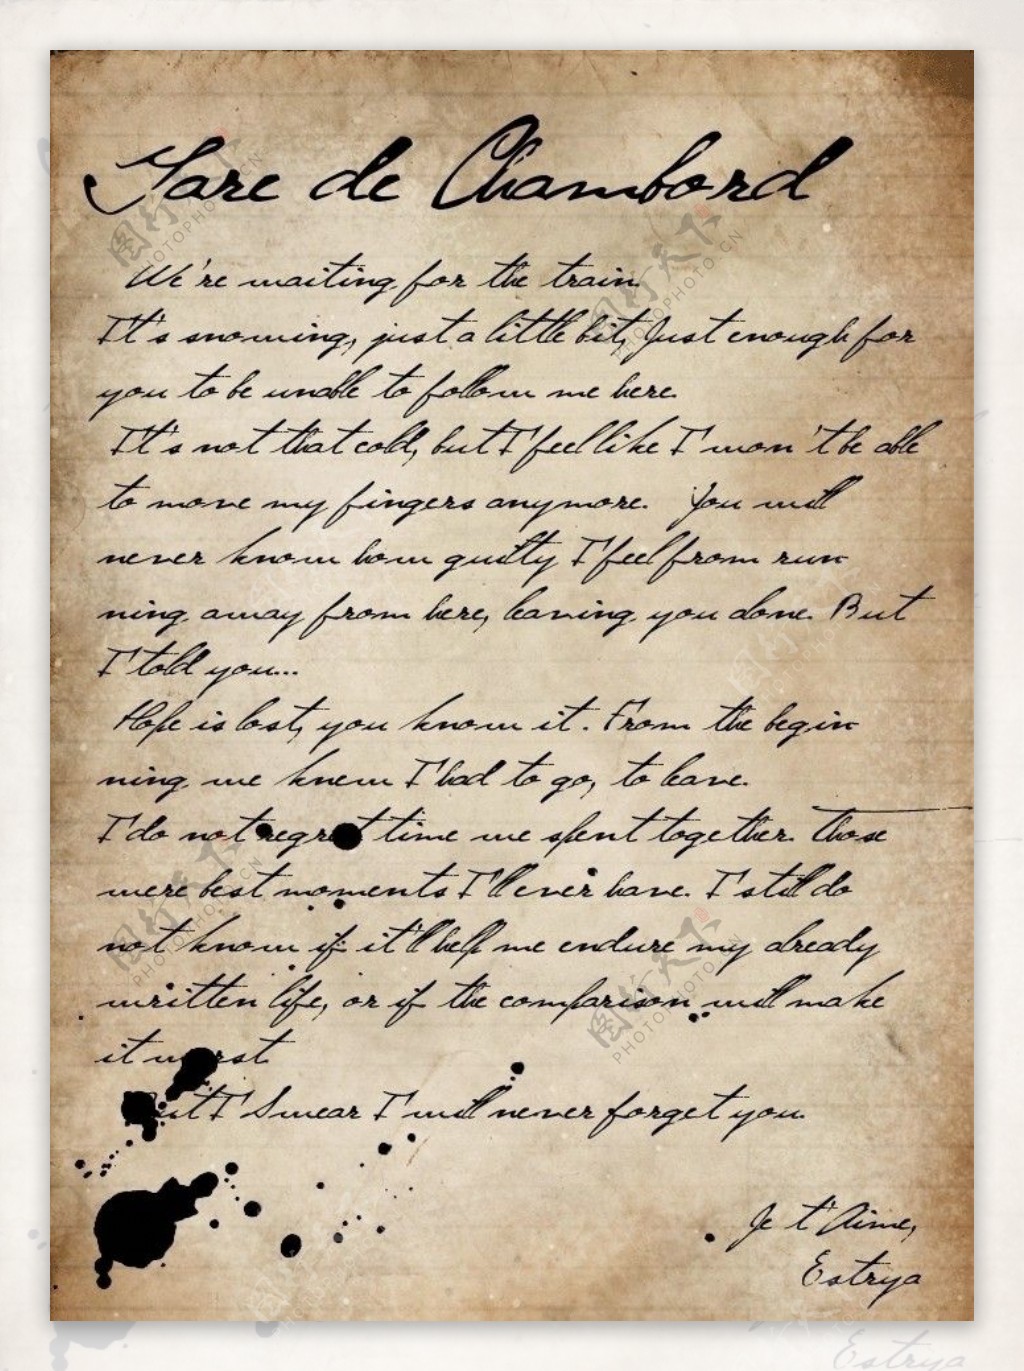 Gare de Chambord
We're waiting for the train.
It's snowing, just a little bit, Just enough for
you to be unable to follow me here.
It's not that cold, but I feel like I won't be able
to move my fingers anymore. You will
never know how guilty I feel from run
ning away from here, leaving you alone. But
I told you...
Hope is lost, you know it. From the begin
ning we knew I had to go, to leave.
I do not regret time we spent together. Those
were best moments I'll ever have. I still do
not know if it'll help me endure my already
written life, or if the comparison will make
it worst.
But I Swear I will never forget you.
Je t'Aime,
Estrya
图行天下
PHOTOPHOTO.CN
Estrya